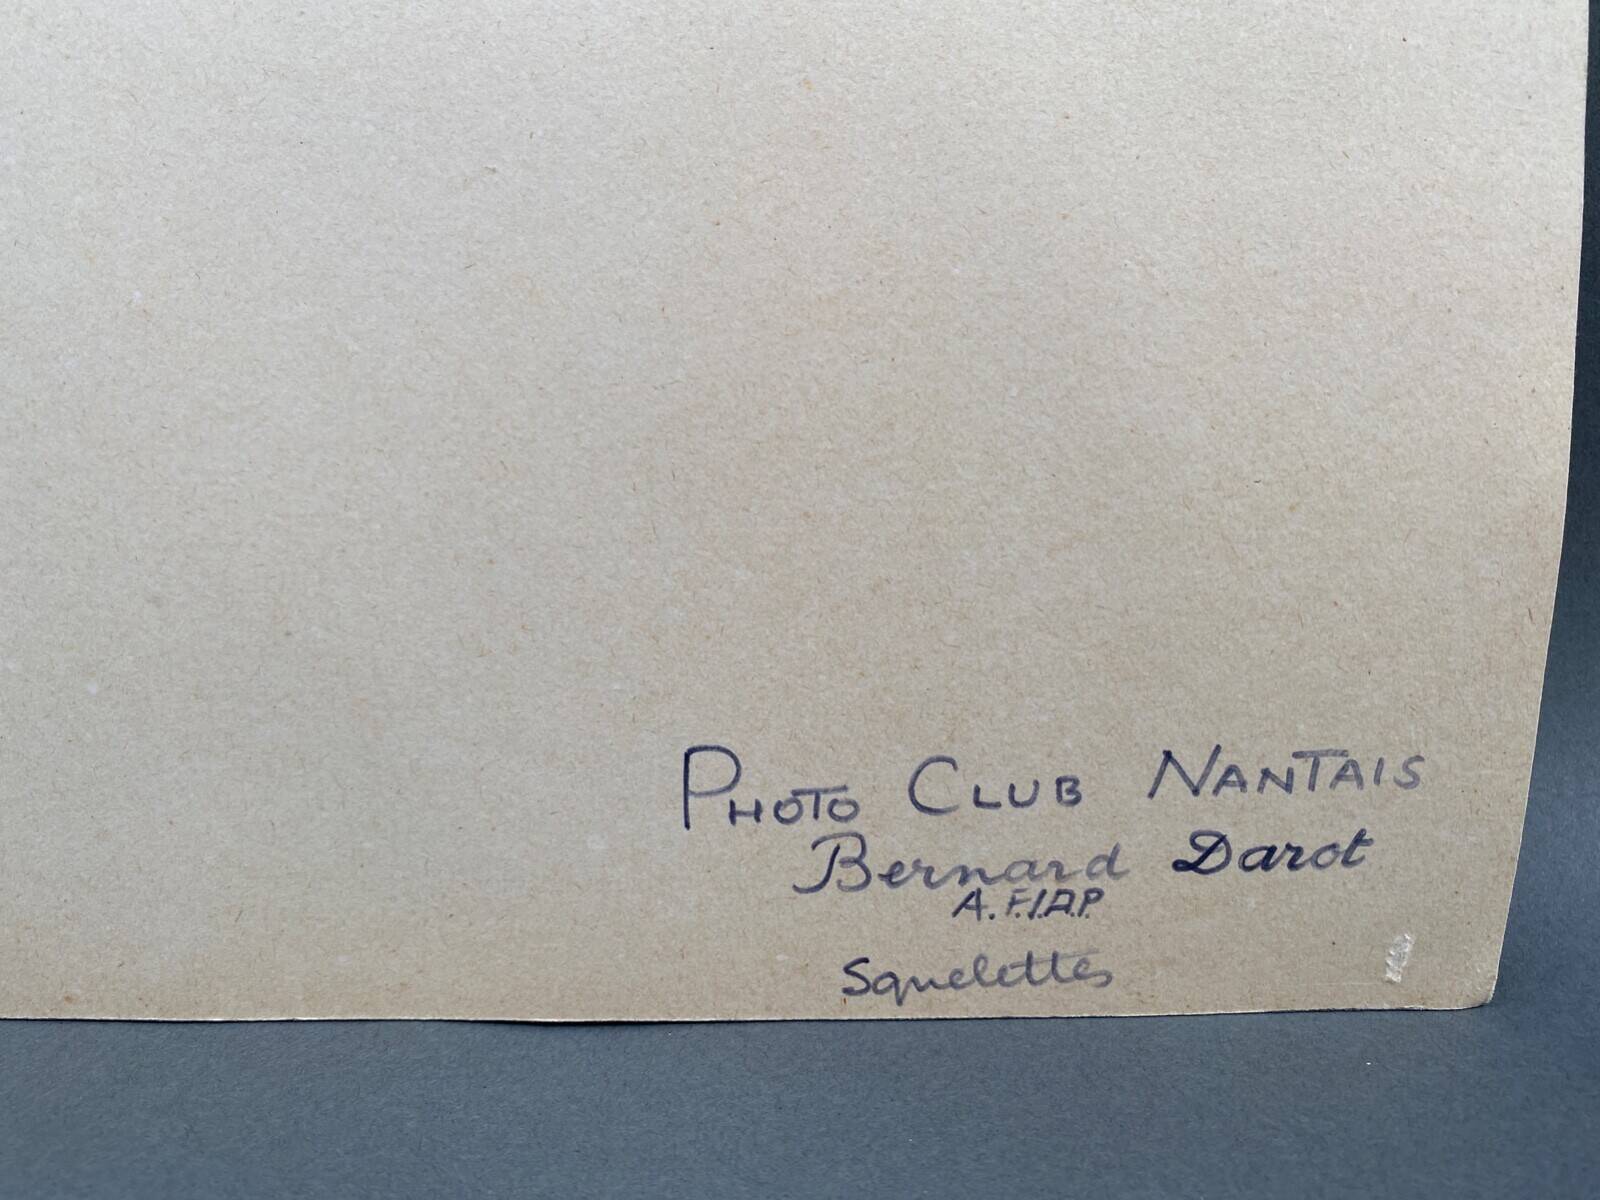 PHOTO CLUB NANTAIS
Bernard Darot
A.F.I.A.P.
Squelettes